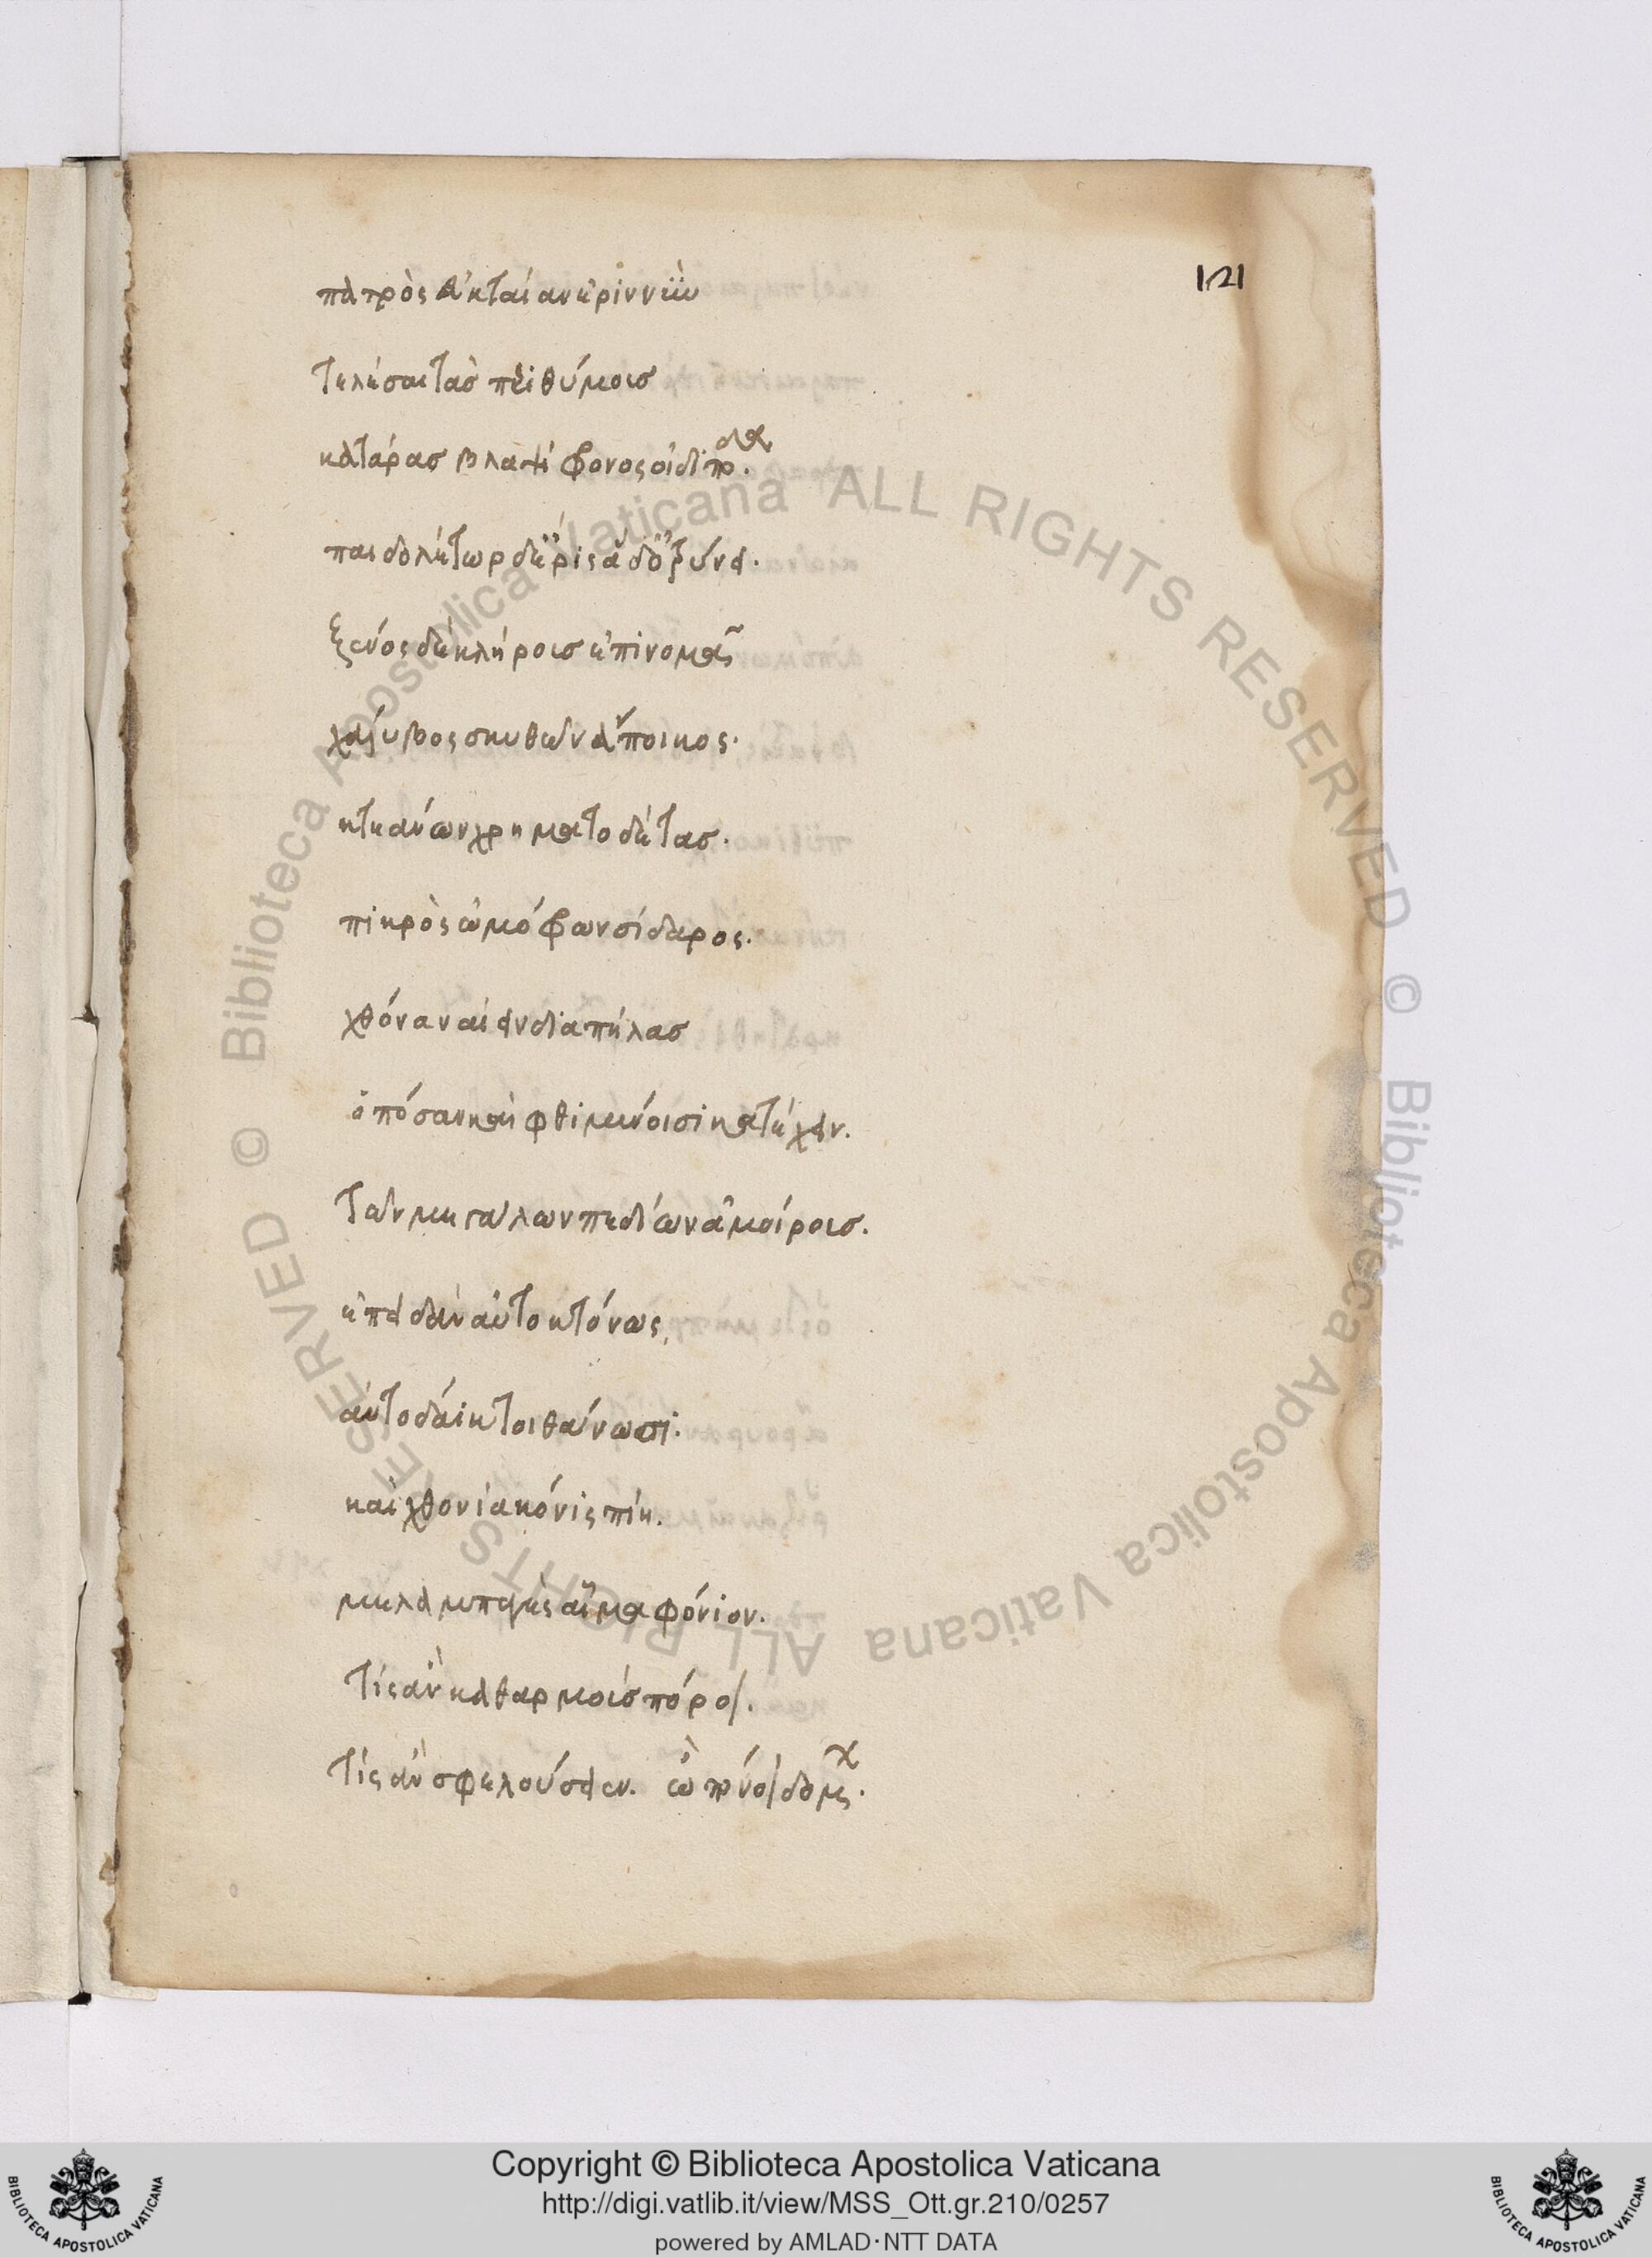 121
πατρὸς εὐκταίαν ἐριννῢν
τελέσαι τὰσ περιθύμοισ
κατάρασ βλαψίφρονος οἰδιπόδα.
παιδολέτωρ δ' ἔρις ἅδ' ὀτρύνει.
ξένος δὲ κλήροισ ἐπινομᾶ
χάλυβος σκυθῶν ἄποικος.
κτεάνων χρηματοδέτας.
πικρὸς ὠμόφρων σίδαρος.
χθόνα ναίειν διαπήλασ
ὁπόσαν καὶ φθιμένοισι κατέχειν.
τῶν μεγάλων πεδίων ἀμοίροισ.
ἐπειδὰν αὐτοκτόνως
αὐτοδάϊκτοι θάνωσι.
καὶ χθονία κόνις πίη.
μελαμπαγὲς αἷμα φόνιον.
τίς ἂν καθαρμοὺσ πόροι.
τίς ἂν σφε λούσειεν. ὢ πόνοι δόμων.
Copyright © Biblioteca Apostolica Vaticana
http://digi.vatlib.it/view/MSS_Ott.gr.210/0257
powered by AMLAD·NTT DATA
© Biblioteca Apostolica Vaticana ALL RIGHTS RESERVED
© Biblioteca Apostolica Vaticana ALL RIGHTS RESERVED
BIBLIOTECA APOSTOLICA VATICANA
BIBLIOTECA APOSTOLICA VATICANA